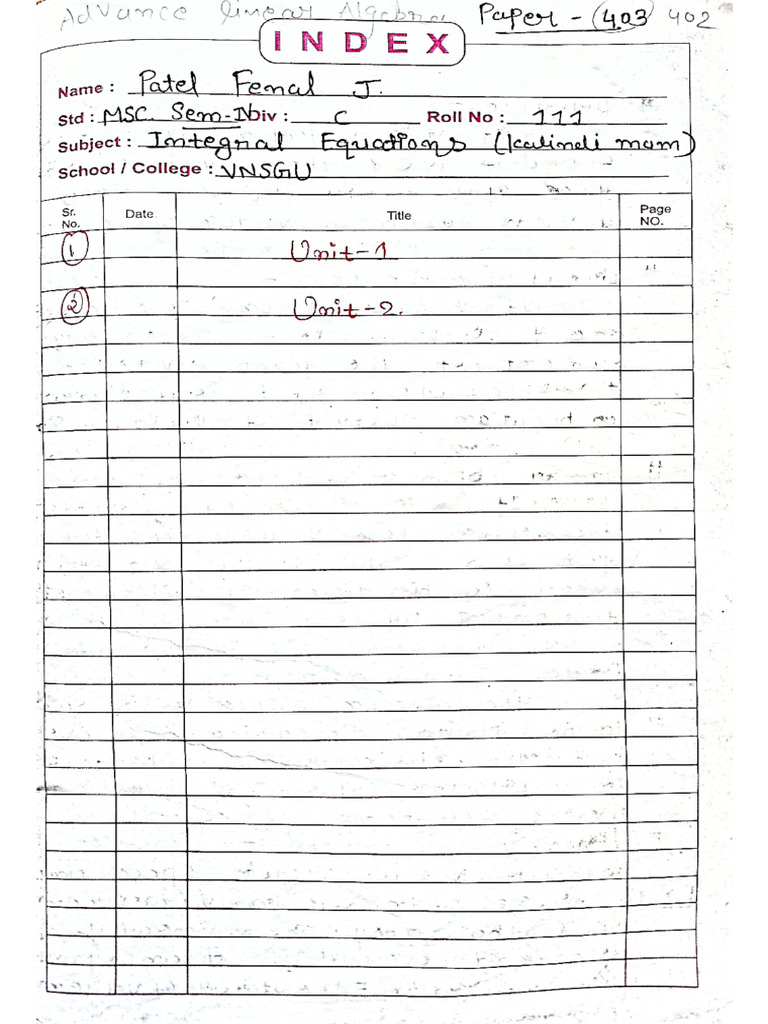 Advance linear Algebra Paper - 403 402
INDEX
Name : Patel Fenal J.
Std : MSC. Sem-IV Div : C Roll No : 111
Subject : Integral Equations (kalindi mam)
School / College : VNSGU
Sr. No. Date Title Page NO.
1 Unit-1
2 Unit-2.